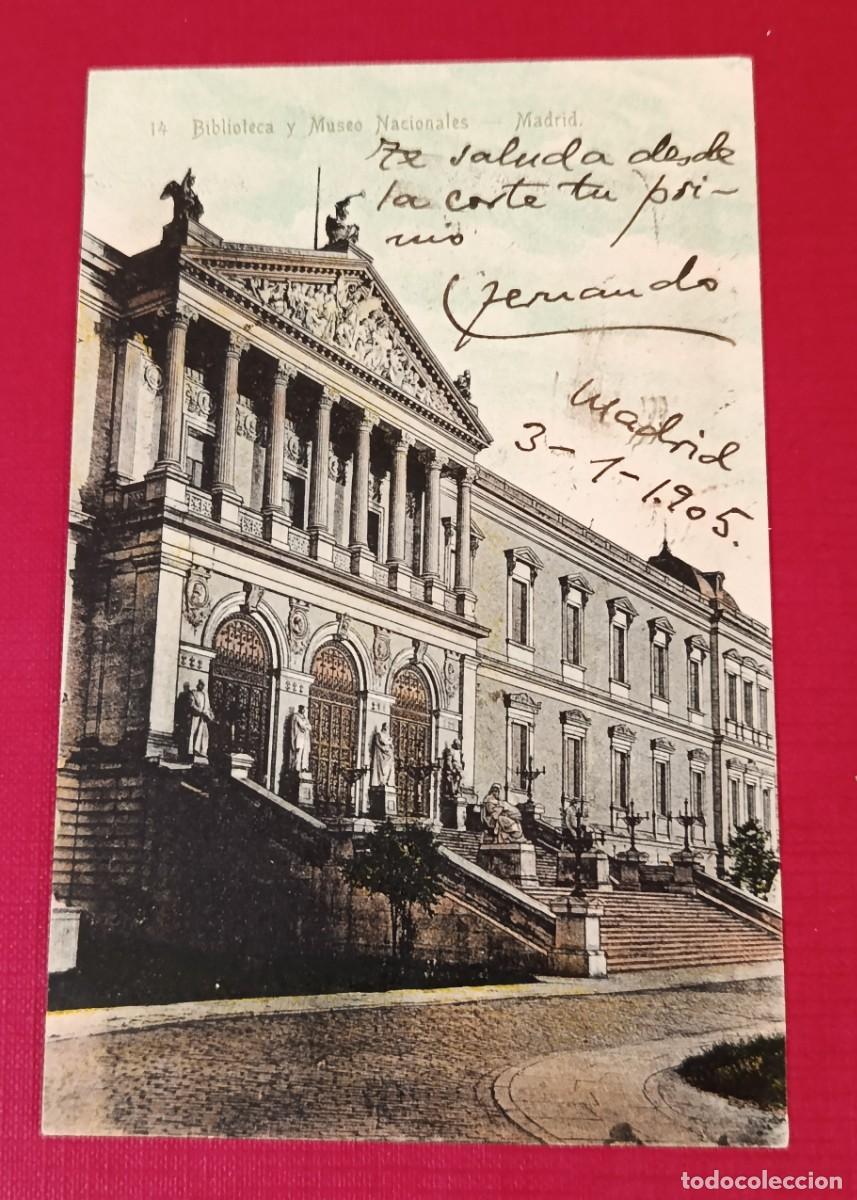 14 Biblioteca y Museo Nacionales — Madrid.
Te saluda desde
la corte tu pri-
mo
Fernando
Madrid
3-1-1.905.
todocoleccion